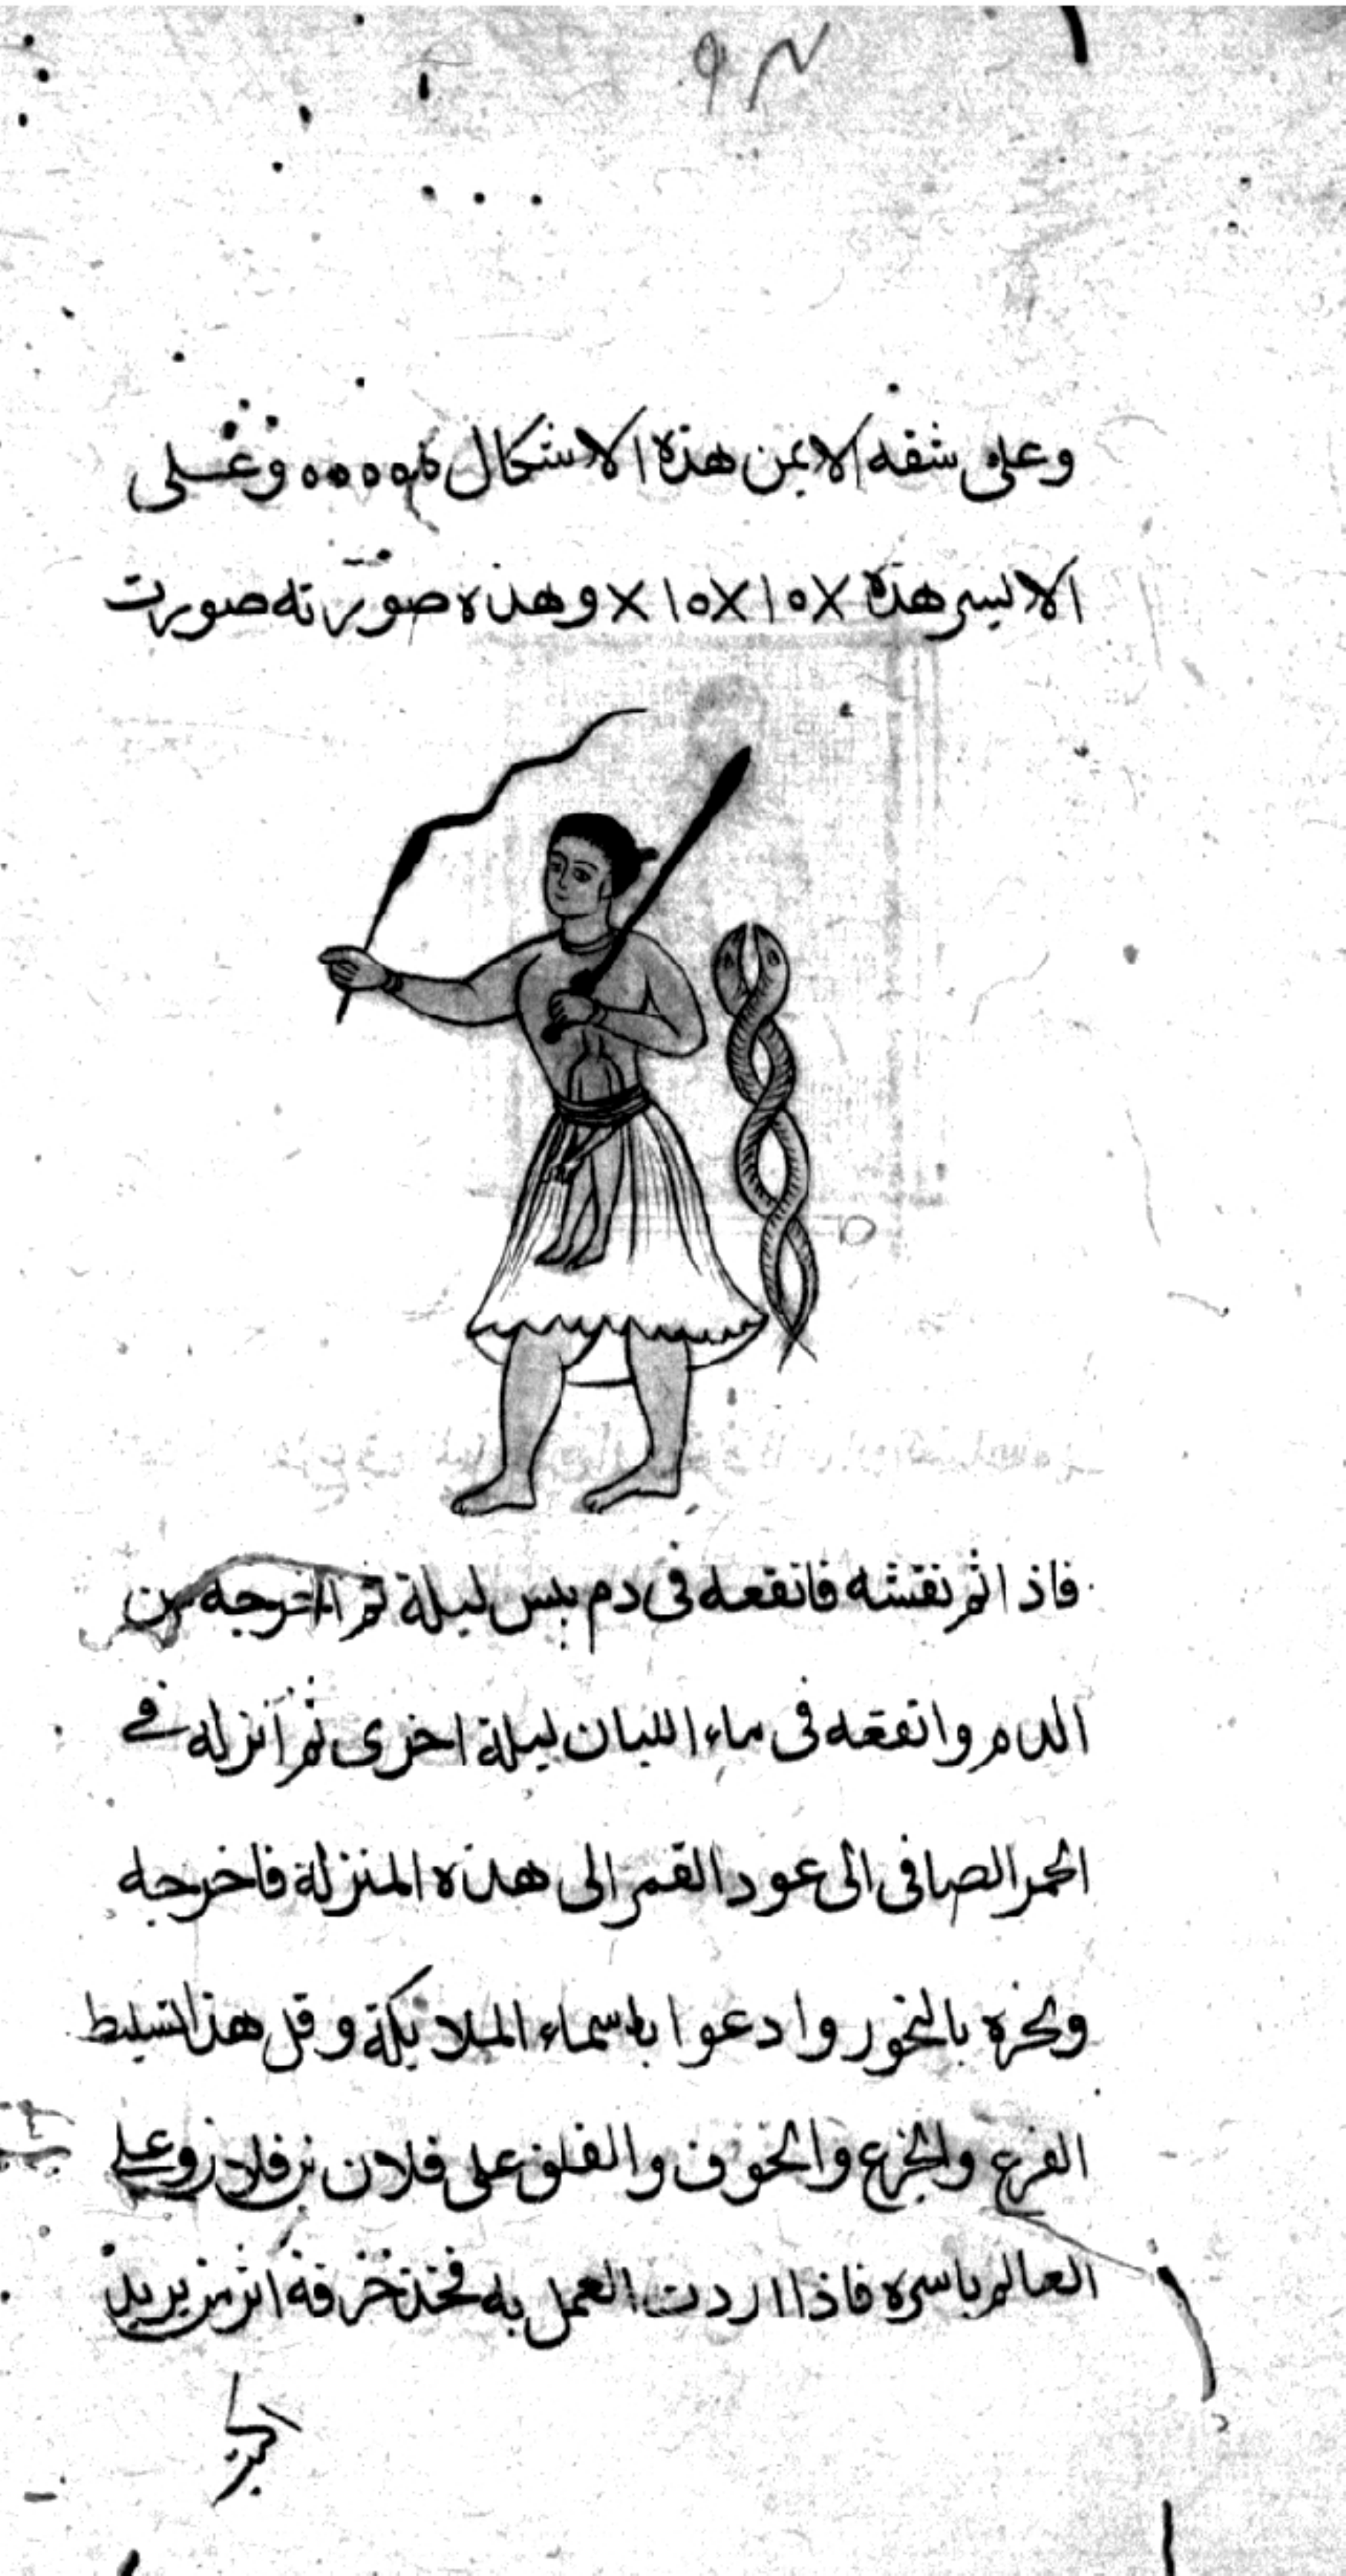 وعلى شقه الايمن هذه الاشكال ه ه ه ه ه ه وعلى
الايسر هذه X ١ ه X ١ ه X وهذه صورته صورت
فاذا تم نقشه فانقعه فى دم بيس ليلة ثم اخرجه من
الدم وانقعه فى ماء اللبان ليلة اخرى ثم أنزله فى
الخمر الصافى الى عود القمر الى هذه المنزلة فاخرجه
وبخره بالبخور وادعوا باسماء الملايكة وقل هذا لتسليط
الفزع والجزع والخوف والقلق على فلان بن فلان وعلى
العالم باسره فاذا اردت العمل به فخذ خرقة اثر من يريد